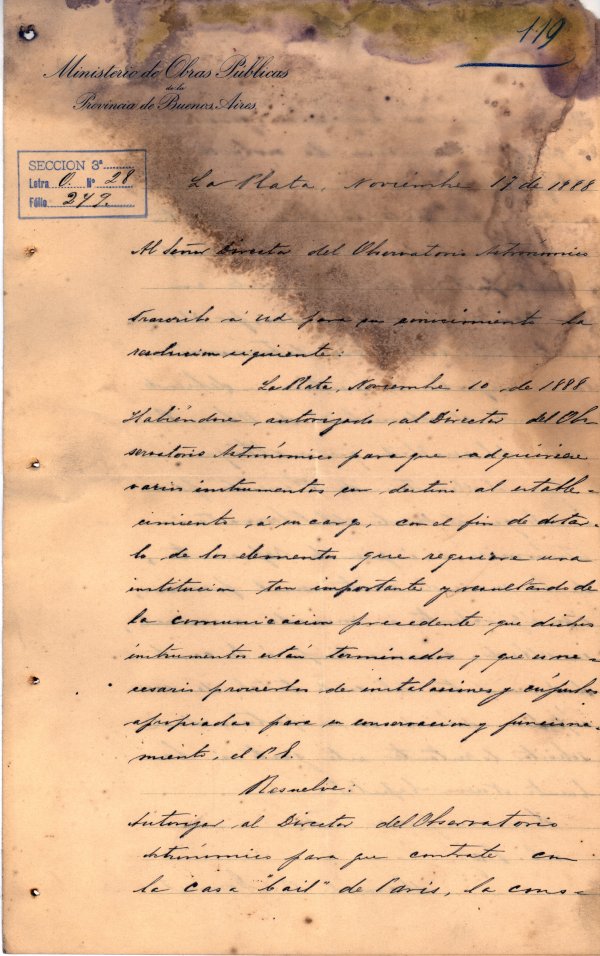 119
Ministerio de Obras Públicas
de la
Provincia de Buenos Aires
SECCION 3ª
Letra O. Nº 28
Fólio 279.
La Plata, Noviembre 17 de 1888
Al Señor Director del Observatorio Astronómico
Trascribo á Ud para su conocimiento la
resolucion siguiente:
La Plata, Noviembre 10 de 1888
Habiéndose autorizado al Director del Ob-
servatorio Astronómico para que adquiriese
varios instrumentos con destino al estable-
cimiento, á su cargo, con el fin de dotar-
lo de los elementos que requiere una
institucion tan importante y resultando de
la comunicacion precedente que dichos
instrumentos están terminados y que es ne-
cesario proveerlos de instalaciones y cúpulas
apropiadas para su conservacion y funciona-
miento, el P.E.
Resuelve:
Autorizar al Director del Observatorio
Astronómico para que contrate con
la casa "Cail" de Paris, la cons-